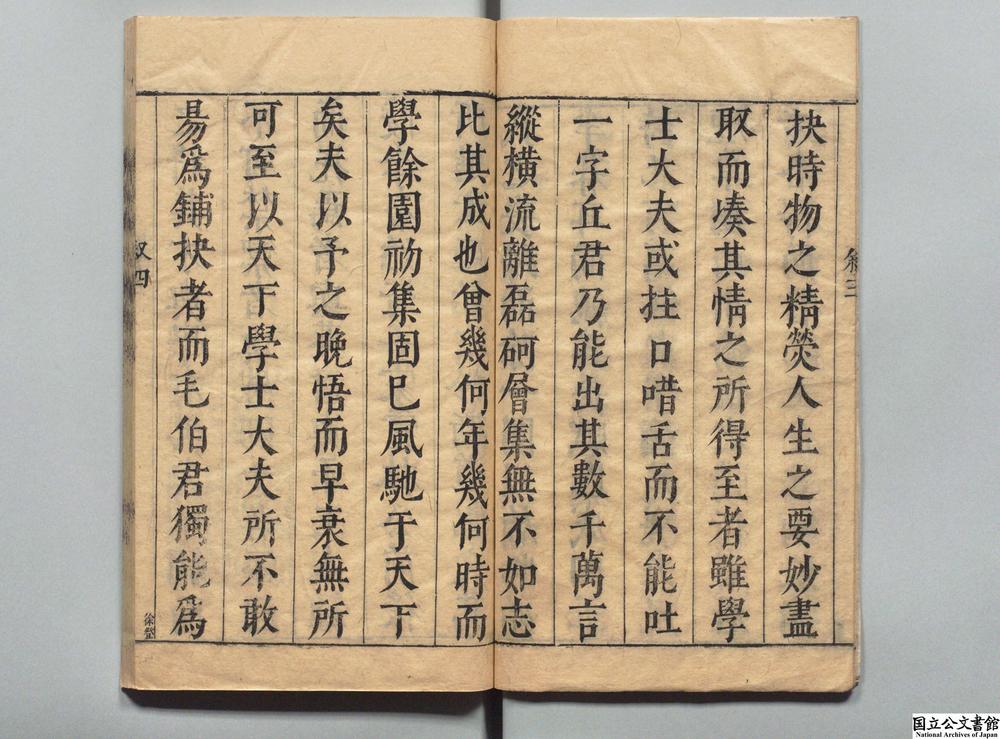 抉時物之精熒人生之要妙盡
取而湊其情之所得至者雖學
士大夫或拄口唶舌而不能吐
一字丘君乃能出其數千萬言
縱橫流離磊砢層集無不如志
比其成也曾幾何年幾何時而
學餘園初集固已風馳于天下
矣夫以予之晚悟而早衰無所
可至以天下學士大夫所不敢
易爲鋪抉者而毛伯君獨能爲
叙三
叙四
国立公文書館
National Archives of Japan